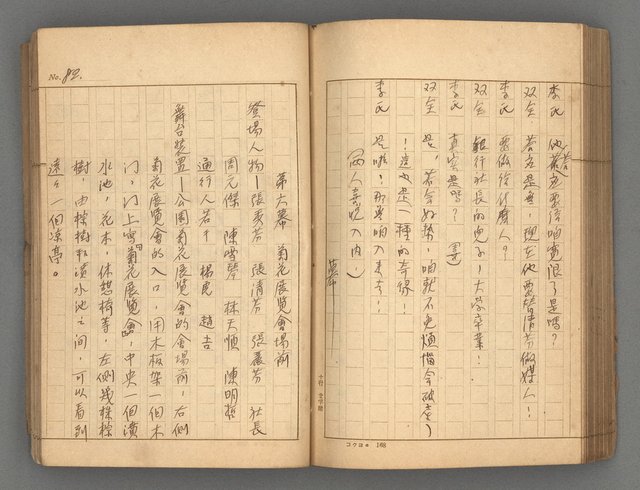 李氏　他答应要給咱寬限了是嗎?
双全　若若是無,現在他要替清芬做媒人!
李氏　要做給什麼人?
双全　銀行社長的兒子!大学卒業!
李氏　真实是嗎?
双全　是,若会好勢,咱就不免煩惱会破產!
!這也是一種的奇緣!
李氏　是啦!那要咱入來去!
(兩人喜悅入內!)
幕
コクヨ 168
No. 82.
第六幕　菊花展覽會場前
登場人物—張英芳　張清芬　張麗芬　社長
周元傑　陳雪琴　林天順　陳明哲
通行人若干　楊虎　趙吉
舞台裝置—公園菊花展覽會的會場前,右側
菊花展覽會的入口,用木板架一個木
門,門上寫菊花展覽會,中央一個噴
水池,花木,休憩椅等,左側幾株棕
樹,由棕樹和噴水池之间,可以看到
遠々一個涼亭。